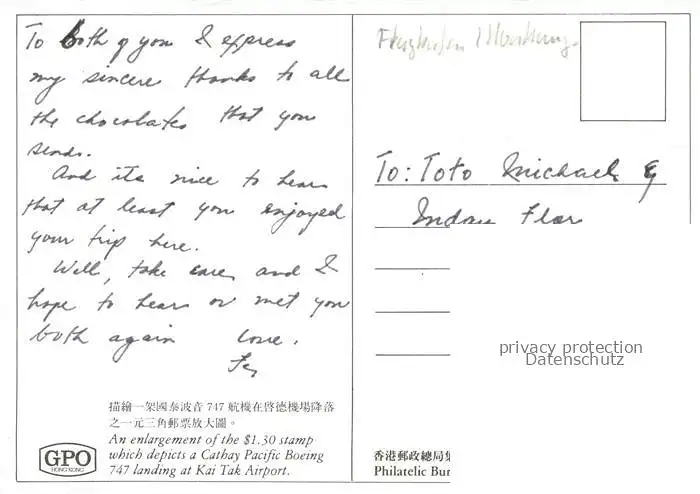 To both of you I express
my sincere thanks to all
the chocolates that you
sends.
And its nice to hear
that at least you enjoyed
your trip here.
Well, take care, and I
hope to hear or met you
both again love.
描繪一架國泰波音 747 航機在啓德機場降落
之一元三角郵票放大圖。
An enlargement of the $1.30 stamp
which depicts a Cathay Pacific Boeing
747 landing at Kai Tak Airport.
GPO
HONG KONG
To: Toto Michael &
privacy protection
Datenschutz
香港郵政總局集
Philatelic Bur